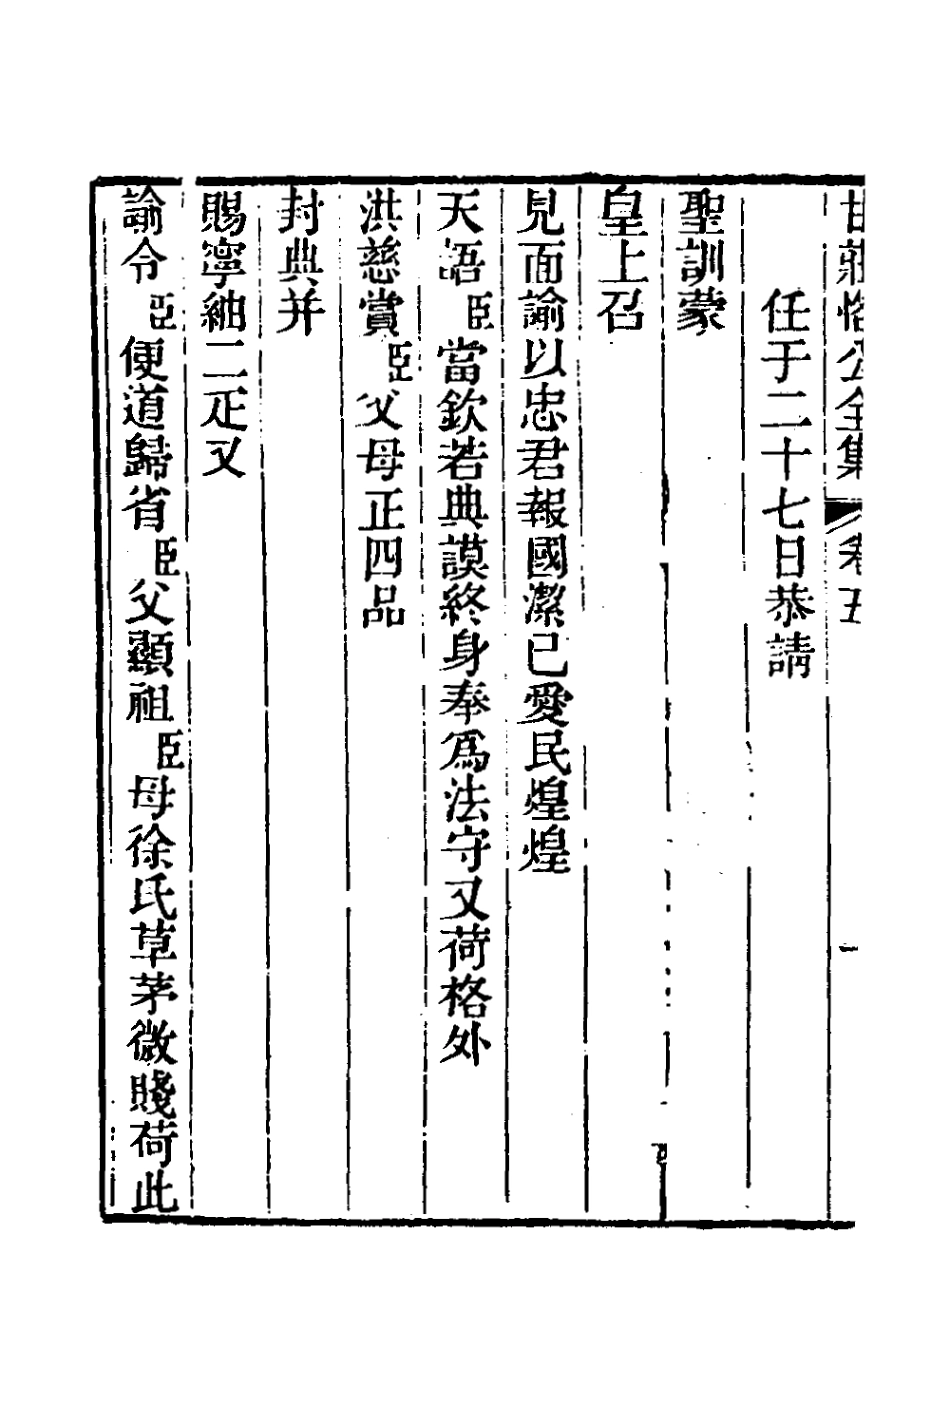 甘莊恪公全集 卷五 一
任于二十七日恭請
聖訓蒙
皇上召
見面諭以忠君報國潔已愛民煌煌
天語臣當欽若典謨終身奉爲法守又荷格外
洪慈賞臣父母正四品
封典并
賜寧紬二疋又
諭令臣便道歸省臣父顯祖臣母徐氏草茅微賤荷此